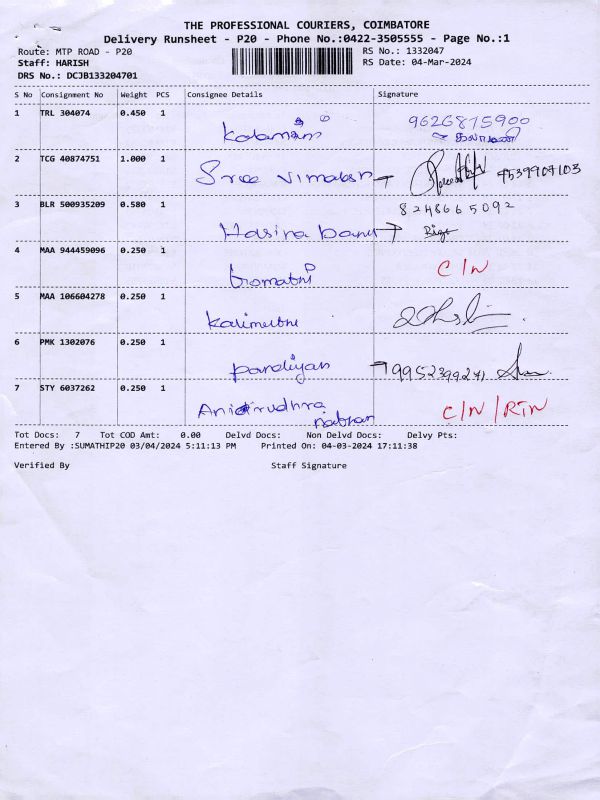 THE PROFESSIONAL COURIERS, COIMBATORE
Delivery Runsheet - P20 - Phone No.:0422-3505555 - Page No.:1
Route: MTP ROAD - P20 RS No.: 1332047
Staff: HARISH RS Date: 04-Mar-2024
DRS No.: DCJB133204701
S No Consignment No Weight PCS Consignee Details Signature
1 TRL 304074 0.450 1 Kalamani 9626875900
கலாமணி
2 TCG 40874751 1.000 1 Sree Vimalesh 9539907103
3 BLR 500935209 0.580 1 Hasina banu 8248665092
4 MAA 944459096 0.250 1 Gomathi C/N
5 MAA 106604278 0.250 1 Kalimuthu
6 PMK 1302076 0.250 1 Pandiyan 9952399271
7 STY 6037262 0.250 1 Anirudhra C/N/RTN
Tot Docs: 7 Tot COD Amt: 0.00 Delvd Docs: Non Delvd Docs: Delvy Pts:
Entered By :SUMATHIP20 03/04/2024 5:11:13 PM Printed On: 04-03-2024 17:11:38
Verified By Staff Signature